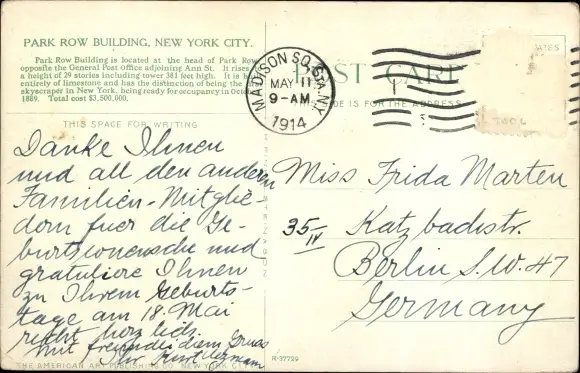 PARK ROW BUILDING, NEW YORK CITY.
Park Row Building is located at the head of Park Row
opposite the General Post Office adjoining Ann St. It rises
a height of 29 stories including tower 381 feet high. It is
entirely of limestone and has the distinction of being the
skyscraper in New York, being ready for occupancy in
1889. Total cost $3,500,000.
THIS SPACE FOR WRITING
Danke Ihnen
und all den anderen
Familien-Mitglie-
dern fuer die Ge-
burtswuensche und
gratuliere Ihnen
zu Ihrem Geburts-
tage am 18. Mai
recht herzlich.
Mit freundlichem Gruss
Ihr Kurt Hermann
THE AMERICAN ART PUBLISHING CO. NEW YORK CITY
N-37729
MADISON SQ. STA. N.Y.
MAY 11
9-AM
1914
POST CARD
SIDE IS FOR THE ADDRESS
Miss Frida Marten
35/IV Katzbachstr.
Berlin S.W. 47
Germany